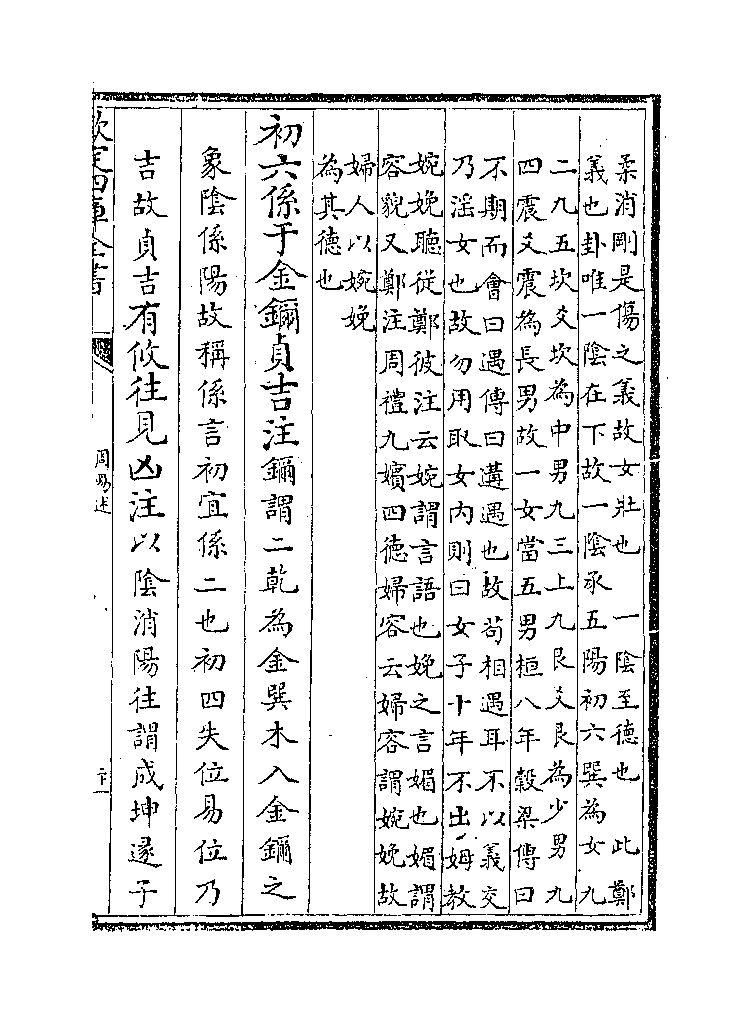 柔消剛是傷之義故女壯也　一陰至德也　此鄭
義也卦唯一陰在下故一陰承五陽初六巽為女九
二九五坎爻坎為中男九三上九艮爻艮為少男九
四震爻震為長男故一女當五男桓八年穀梁傳曰
不期而會曰遇傳曰遘遇也故苟相遇耳不以義交
乃淫女也故勿用取女内則曰女子十年不出姆教
婉娩聽從鄭彼注云婉謂言語也娩之言媚也媚謂
容貌又鄭注周禮九嬪四德婦容云婦容謂婉娩故
婦人以婉娩
為其德也
初六係于金鑈貞吉注鑈謂二乾為金巽木入金鑈之
象陰係陽故稱係言初宜係二也初四失位易位乃
吉故貞吉有攸往見凶注以陰消陽往謂成坤遂子
欽定四庫全書
周易述